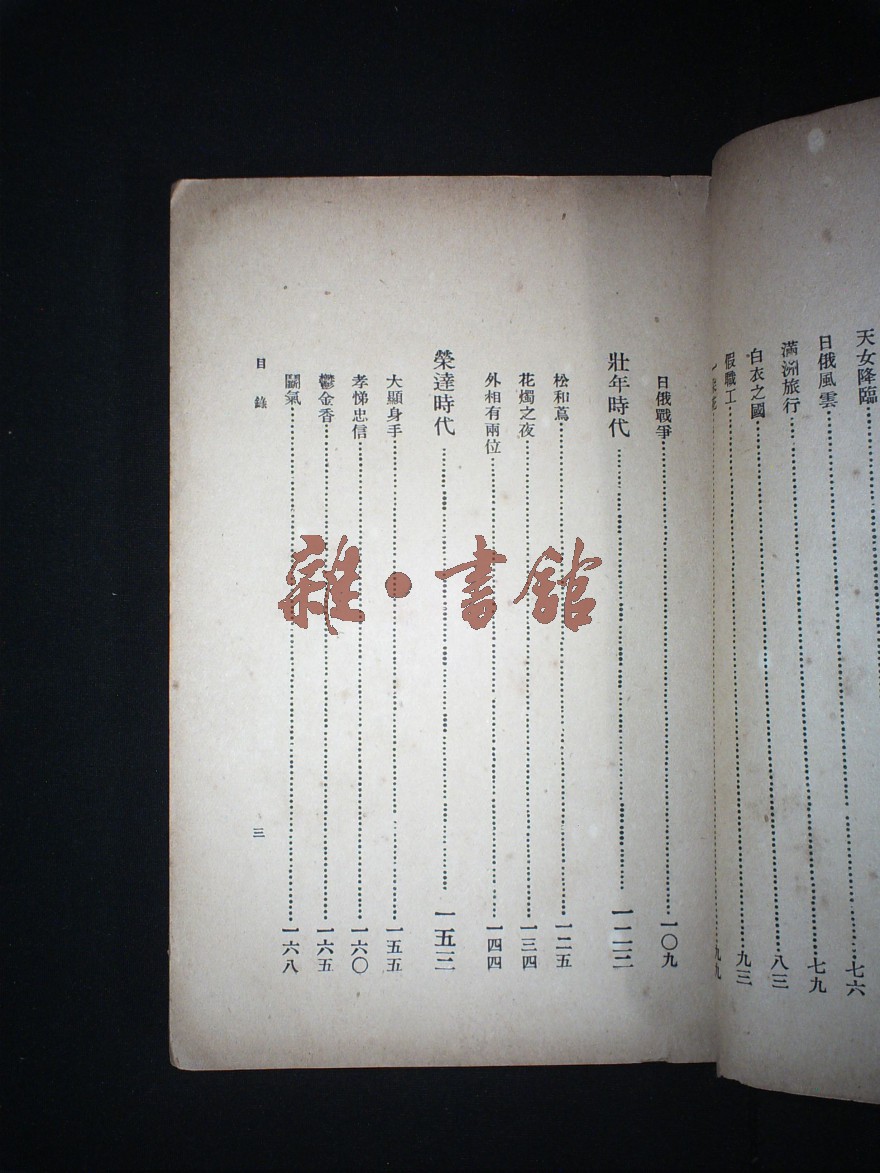 天女降臨
日俄風雲……七六
滿洲旅行……七九
白衣之國……八三
假職工……九三
九九
日俄戰爭……一〇九
壯年時代……一二三
松和蔦……一二五
花燭之夜……一三四
外相有兩位……一四四
榮達時代……一五三
大顯身手……一五五
孝悌忠信……一六〇
鬱金香……一六五
鬭氣……一六八
目錄
三
雜·書館